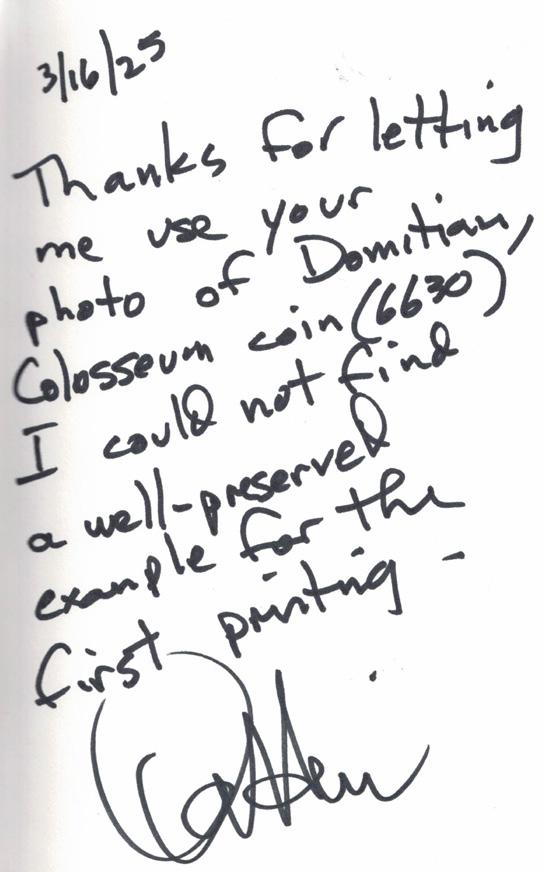 3/16/25
Thanks for letting
me use your
photo of Domitian,
Colosseum coin (6630)
I could not find
a well-preserved
example for the
first printing -